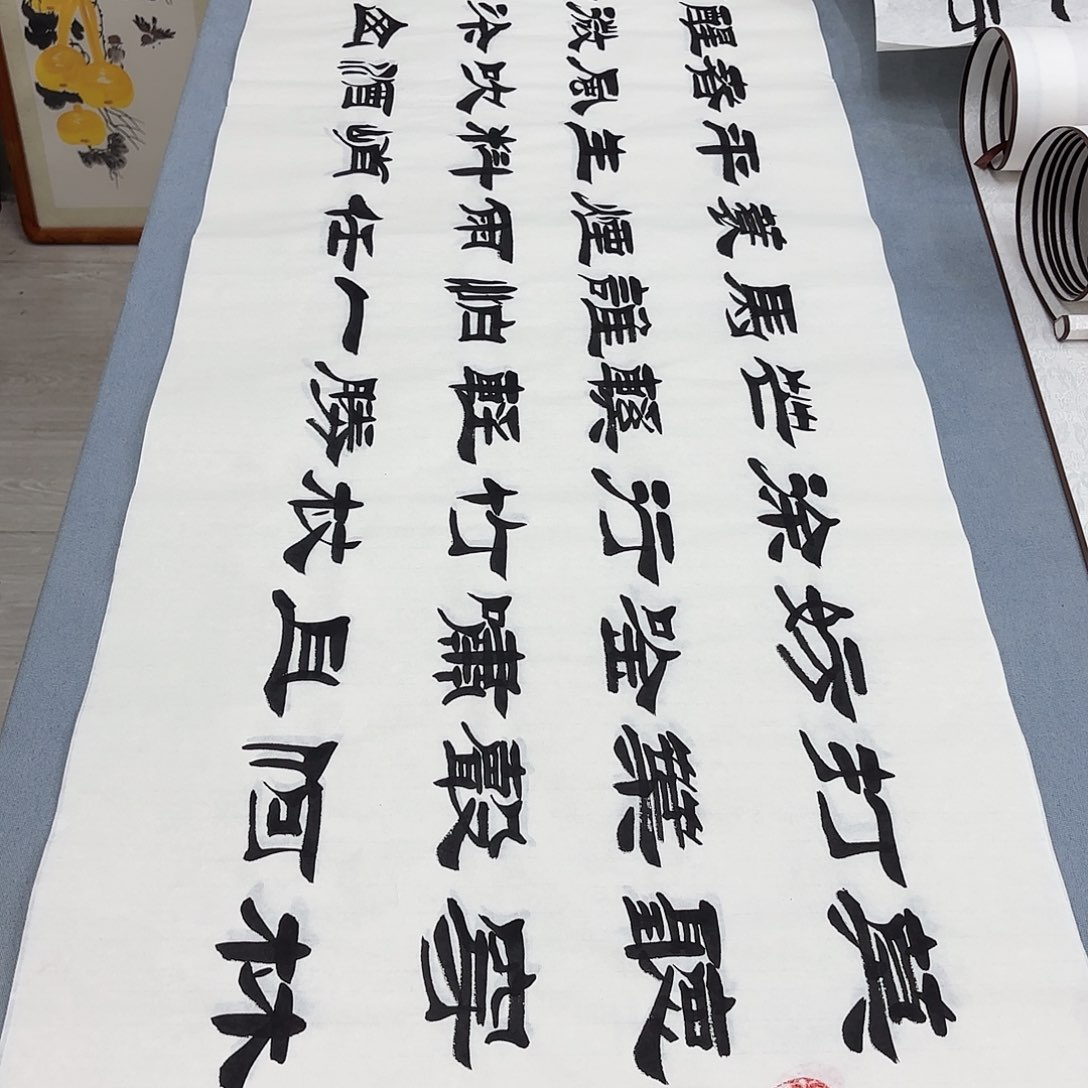 莫聽穿林
打葉聲何
妨吟嘯且
徐行竹杖
芒鞋輕勝
馬誰怕一
蓑煙雨任
平生料峭
春風吹酒
醒微冷山